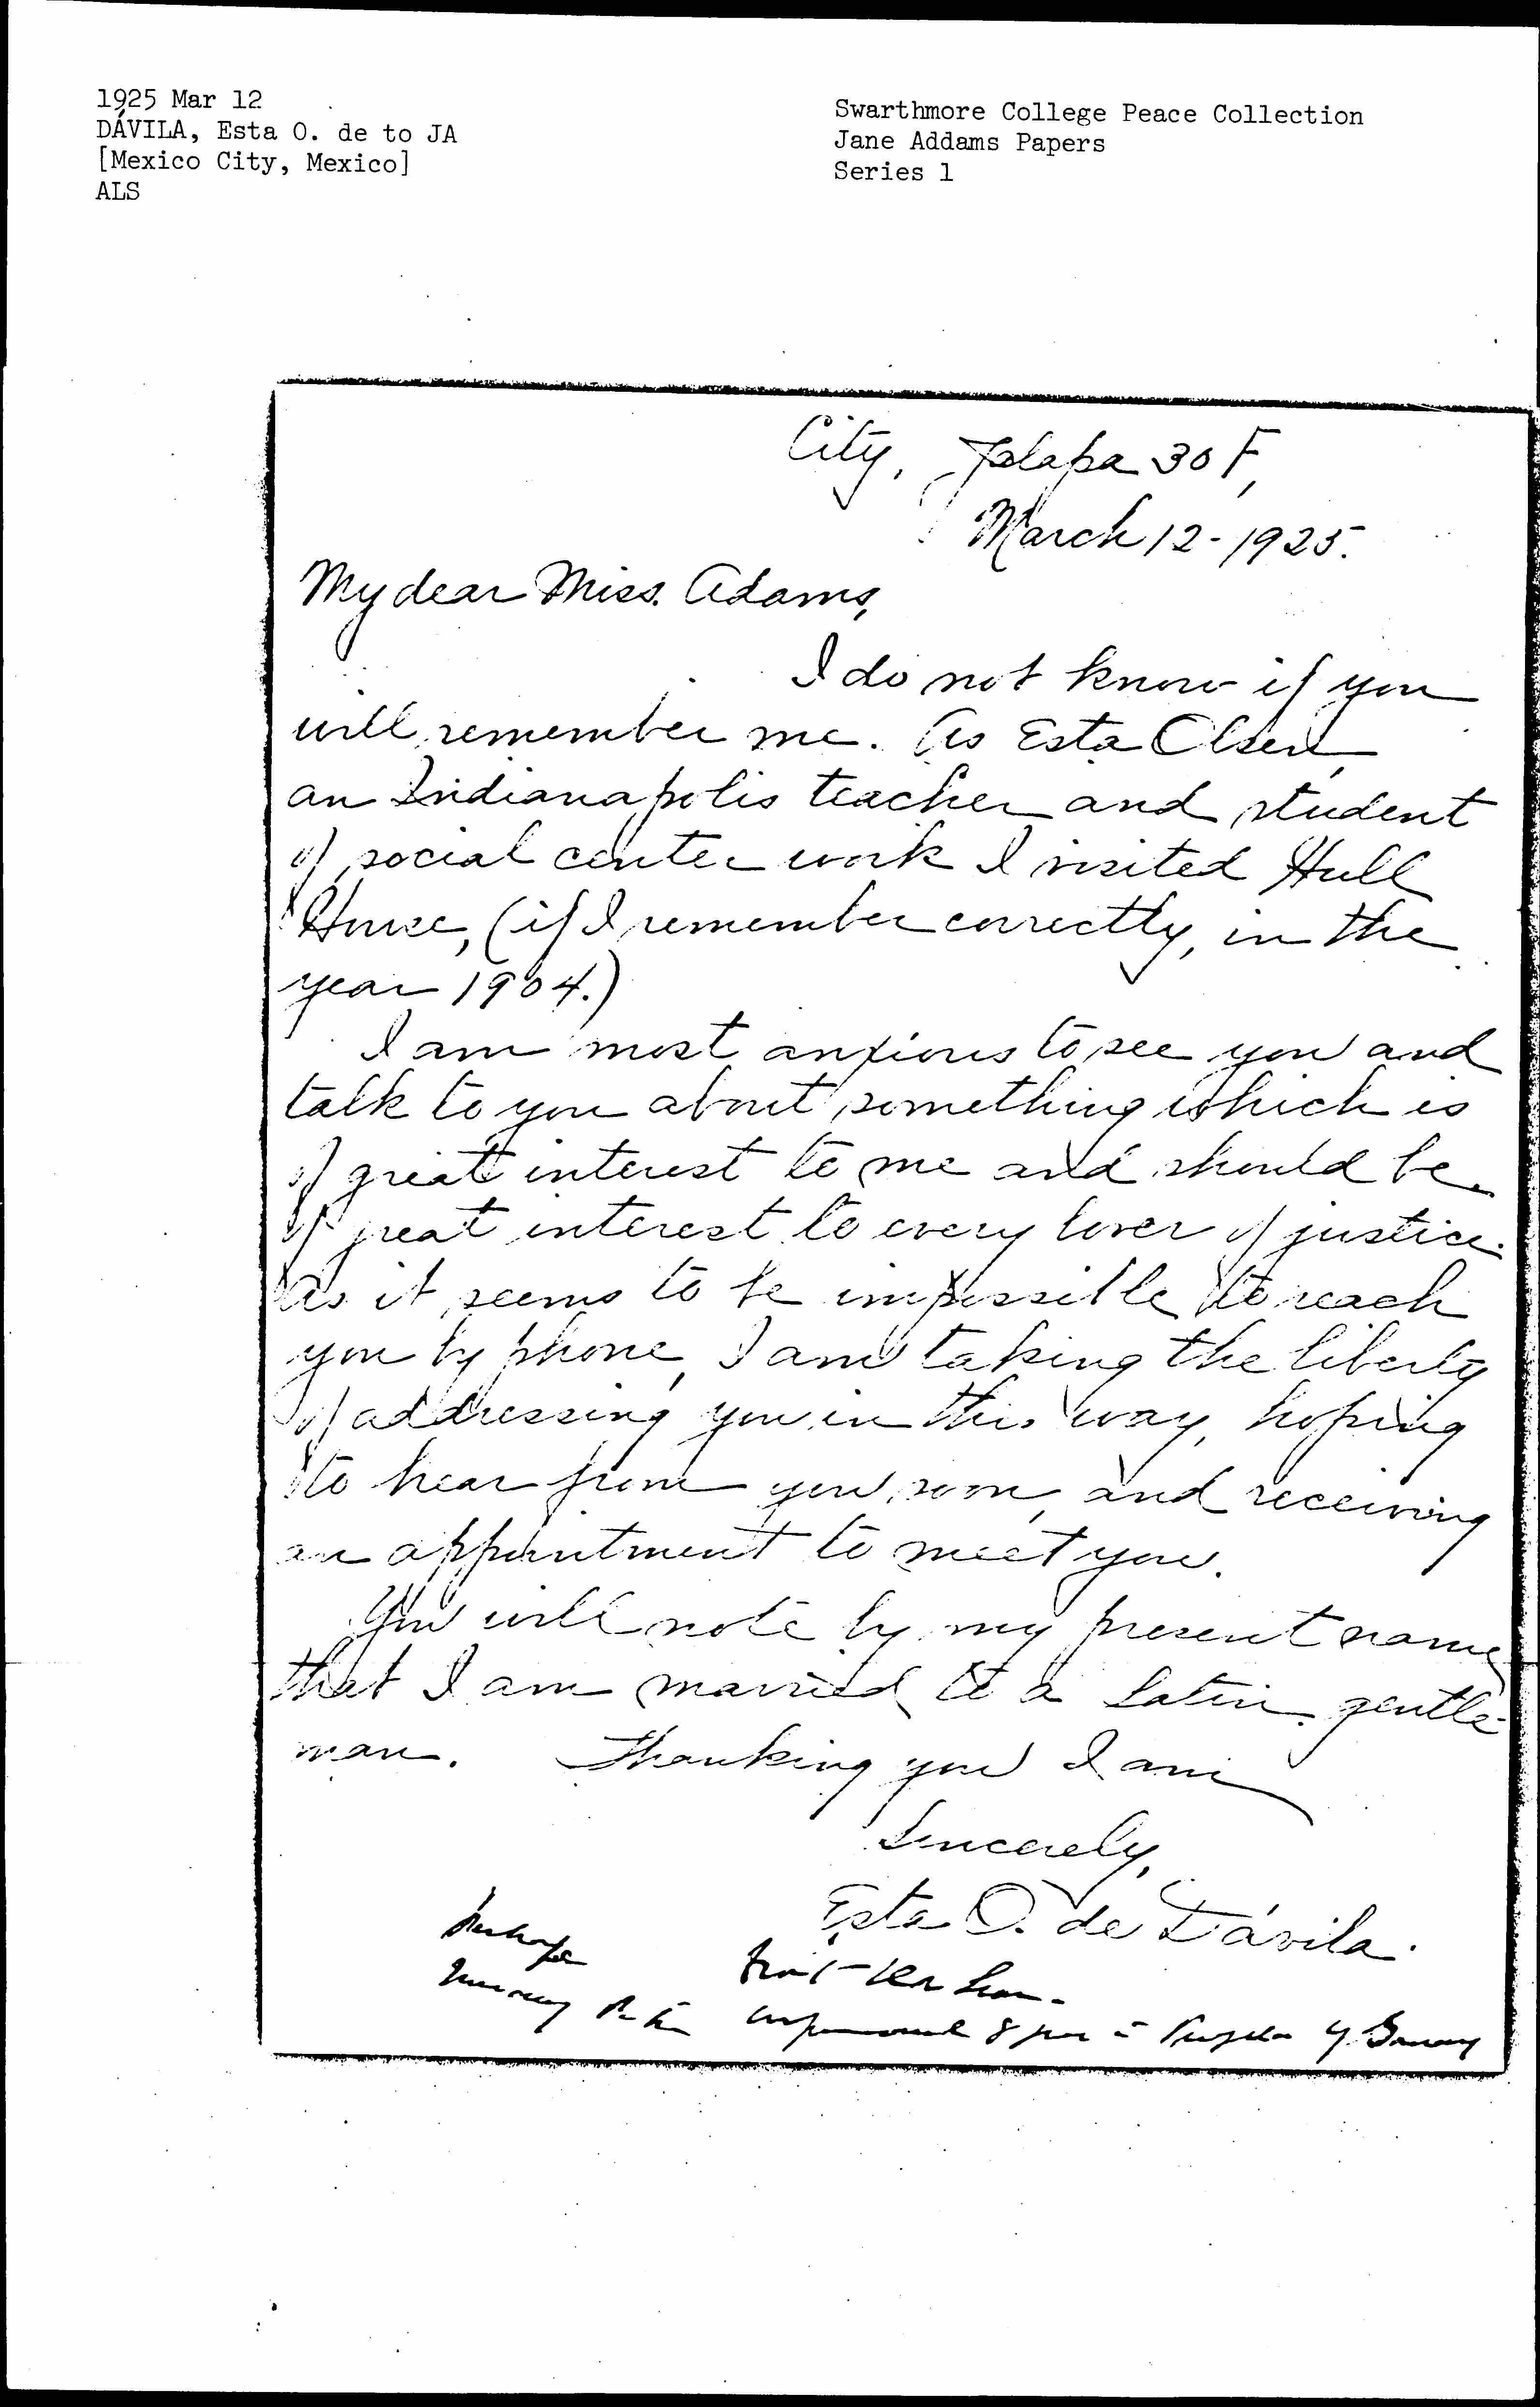 1925 Mar 12
DÁVILA, Esta O. de to JA
[Mexico City, Mexico]
ALS
Swarthmore College Peace Collection
Jane Addams Papers
Series 1
City, Jalapa 30 F,
March 12-1925.
My dear Miss. Adams,
I do not know if you
will remember me. As Esta Olsen,
an Indianapolis teacher and student
of social center work I visited Hull
House, (if I remember correctly, in the
year 1904.)
I am most anxious to see you and
talk to you about something which is
of great interest to me and should be
of great interest to every lover of justice.
As it seems to be impossible to reach
you by phone, I am taking the liberty
of addressing you in this way, hoping
to hear from you soon, and receiving
an appointment to meet you.
You will note by my present name
that I am married to a Latin gentle-
man. Thanking you I am
Sincerely,
Esta O. de Dávila.